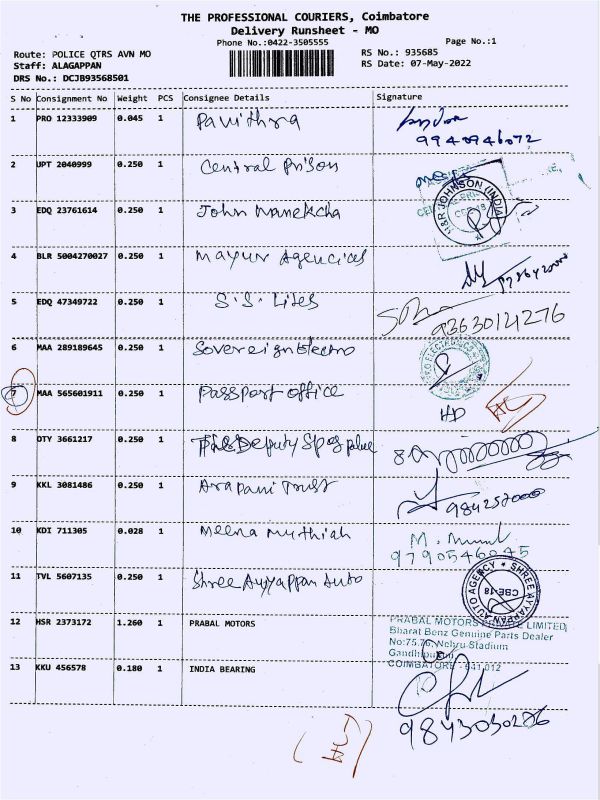 THE PROFESSIONAL COURIERS, Coimbatore
Delivery Runsheet - MO
Phone No.:0422-3505555 Page No.:1
Route: POLICE QTRS AVN MO RS No.: 935685
Staff: ALAGAPPAN RS Date: 07-May-2022
DRS No.: DCJB93568501
S No Consignment No Weight PCS Consignee Details Signature
1 PRO 12333909 0.045 1 Pavithra
9940946072
2 UPT 2040999 0.250 1 Central Prison
3 EDQ 23761614 0.250 1 John
H&R JOHNSON (INDIA)
4 BLR 5004270027 0.250 1 Mayur Agencies
5 EDQ 47349722 0.250 1 S.S. Lites
9363014276
6 MAA 289189645 0.250 1 Sovereign Electro
7 MAA 565601911 0.250 1 Passport office
HD
8 OTY 3661217 0.250 1 Deputy
9 KKL 3081486 0.250 1 Arapani Trust
984257000
10 KDI 711305 0.028 1 Meena Muthiah
M.
9790546045
11 TVL 5607135 0.250 1 Shree Ayyappan Auto
SHREE AYYAPPAN AUTO AGENCY
CBE-18
12 HSR 2373172 1.260 1 PRABAL MOTORS
PRABAL MOTORS PRIVATE LIMITED
Bharat Benz Genuine Parts Dealer
No:75,76, Nehru Stadium
Gandhipuram
COIMBATORE - 641 012
13 KKU 456578 0.180 1 INDIA BEARING
9843030286